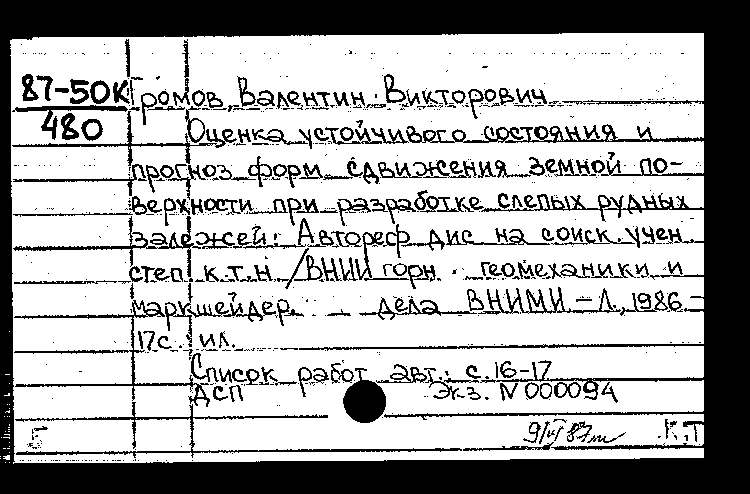 87-50К Громов, Валентин Викторович
480
Оценка устойчивого состояния и
прогноз форм сдвижения земной по-
верхности при разработке слепых рудных
залежей: Автореф дис на соиск. учен.
степ к.т.н /ВНИИ горн. геомеханики и
маркшейдер. дела ВНИМИ - Л., 1986 -
17с. ил.
Список работ авт.: с.16-17
ДСП Экз. N 000094
Б К,Т